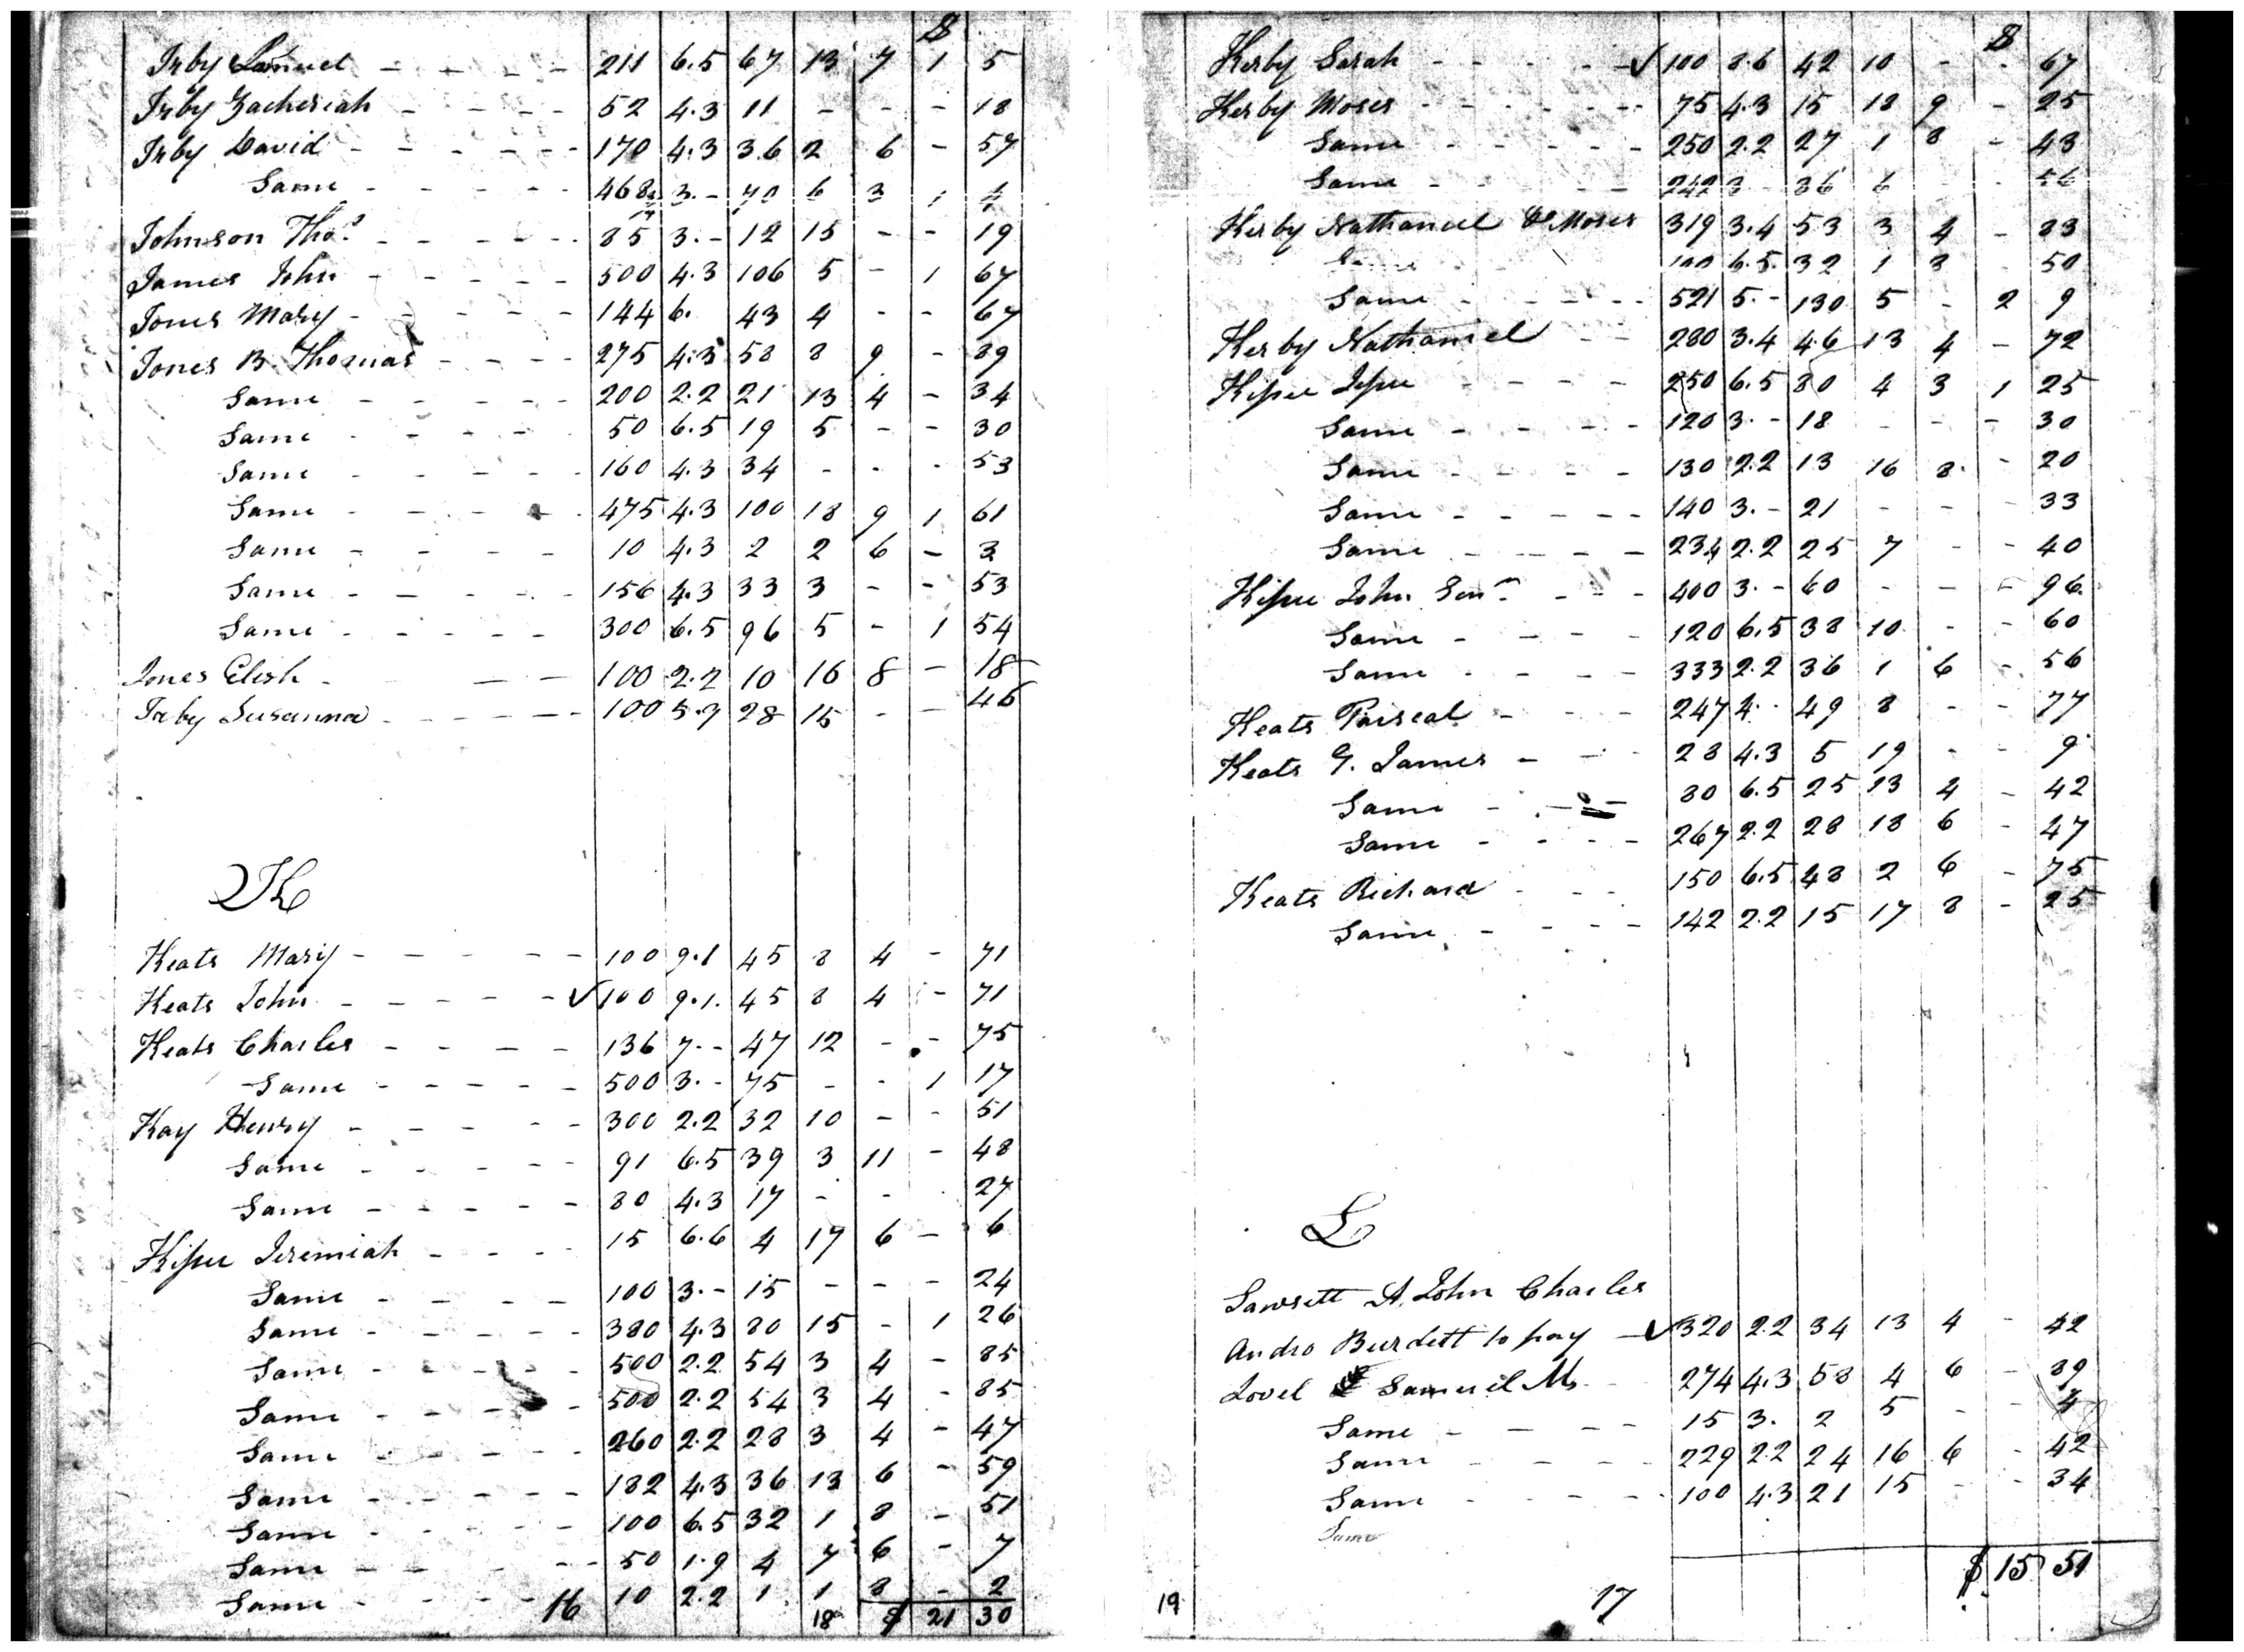 $
Irby Samuel - - - - - 211 6.5 67 13 7 1 5
Irby Zacheriah - - - - 52 4.3 11 - - - 18
Irby David - - - - - - 170 4.3 36 2 6 - 57
Same - - - - - 468¾ 3.- 70 6 3 1 4
Johnson Thos. - - - - - 85 3.- 12 15 - - 19
James John - - - - - 500 4.3 106 5 - 1 67
Jones Mary - - - - - 144 6. 43 4 - - 67
Jones B. Thomas - - - - 275 4.3 58 8 9 - 89
Same - - - - - 200 2.2 21 13 4 - 34
Same - - - - 50 6.5 19 5 - - 30
Same - - - - - 160 4.3 34 - - - 53
Same - - - - 475 4.3 100 18 9 1 61
Same - - - - 10 4.3 2 2 6 - 3
Same - - - - - 156 4.3 33 3 - - 53
Same - - - - - 300 6.5 96 5 - 1 54
Jones Elish - - - 100 2.2 10 16 8 - 18
Irby Susanna - - - - - 100 5.9 28 15 - - 46
K
Keats Mary - - - - - 100 9.1 45 8 4 - 71
Keats John - - - - - ✓100 9.1. 45 8 4 - 71
Keats Charles - - - - 136 7.- 47 12 - - 75
Same - - - - - 500 3.- 75 - - 1 17
Kay Henry - - - - - 300 2.2 32 10 - - 51
Same - - - - - 91 6.5 39 3 11 - 48
Same - - - - - 80 4.3 17 - - - 27
Kisee Jeremiah - - - - 15 6.6 4 17 6 - 6
Same - - - - 100 3.- 15 - - - 24
Same - - - - - 380 4.3 80 15 - 1 26
Same - - - - - 500 2.2 54 3 4 - 85
Same - - - - - 500 2.2 54 3 4 - 85
Same - - - - - 260 2.2 28 3 4 - 47
Same - - - - - 182 4.3 36 13 6 - 59
Same - - - - - 100 6.5 32 1 8 - 51
Same - - - - - 50 1.9 4 7 6 - 7
Same - - - - 10 2.2 1 1 8 - 2
16 18 $ 21 30
$
Kerby Sarah - - - - - ✓100 8.6 42 10 - - 67
Kerby Moses - - - - - - 75 4.3 15 18 9 - 25
Same - - - - - 250 2.2 27 1 8 - 43
Same - - - - 242 3 - 36 6 - - 56
Kerby Nathaniel & Moses 319 3.4 53 3 4 - 83
Same 100 6.5. 32 1 3 50
Same - - - - - 521 5.- 130 5 - 2 9
Kerby Nathaniel - - 280 3.4 46 13 4 - 72
Kisee Jesse - - - - 250 6.5 80 4 3 1 25
Same - - - - - 120 3.- 18 - - - 30
Same - - - - - 130 2.2 13 16 8 - 20
Same - - - - - 140 3.- 21 - - - 33
Same - - - - - 234 2.2 25 7 - - 40
Kisee John Senr. - - - 400 3.- 60 - - - 96.
Same - - - - 120 6.5 38 10 - - 60
Same - - - - 333 2.2 36 1 6 - 56
Keats Pascal - - - 247 4.- 49 8 - - 77
Keats G. James - - - 28 4.3 5 19 - - 9
Same - - - 80 6.5 25 13 4 - 42
Same - - - - 267 2.2 28 18 6 - 47
Keats Richard - - - 150 6.5 48 2 6 - 75
Same - - - - 142 2.2 15 17 8 - 25
L
Lawsett A. John Charles
Andro Burdett to pay - ✓320 2.2 34 13 4 - 42
Lovel Samuel M. - 274 4.3 58 4 6 - 89
Same - - - - 15 3. 2 5 - - 4
Same - - - - 229 2.2 24 16 6 - 42
Same - - - - 100 4.3 21 15 - - 34
Same
$ 15 51
19 17